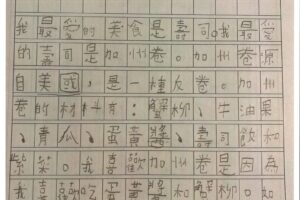 我最愛的美食是壽司。我最愛
的壽司是加州卷。加州卷源
自美國，是一種反卷。加州
卷的材料有：蟹柳、牛油果
、青瓜、蛋黃醬、壽司飯和
紫菜。我喜歡加州卷是因為
我喜歡吃蛋黃醬和蟹柳。如